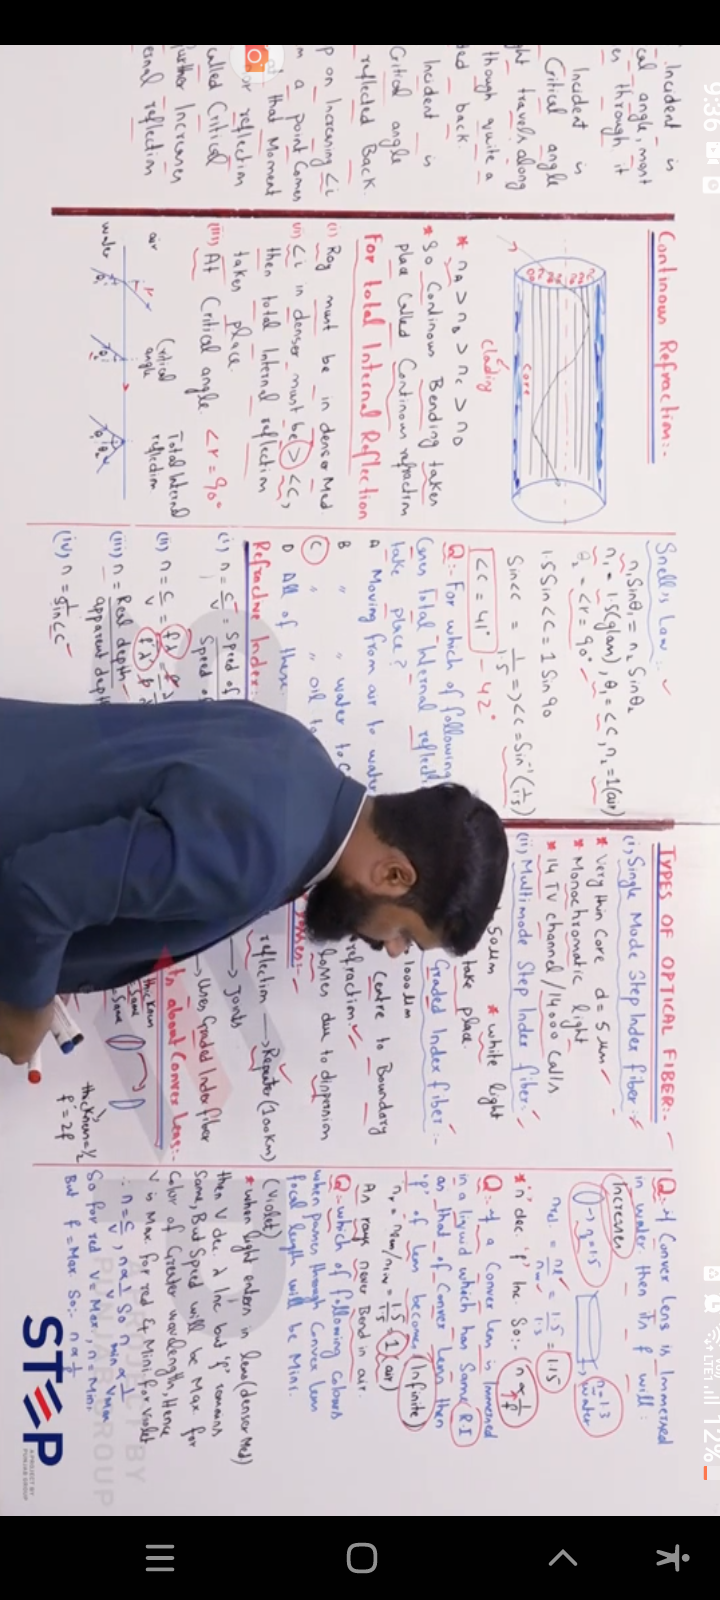 9:36
LTE1 12%
Incident is
cal angle, most
es through it
Incident is
Critical angle
ght travels along
though quite a
ded back
Incident is
Critical angle
reflected Back.
p on Increasing <i
m a point comes
at that Moment
or reflection
called Critical
further Increases
ernal reflection
Continous Refraction:-
core
clading
* nA > nB > nC > nD
* So Continous Bending takes
place called Continous refraction
For total Internal Reflection
(i) Ray must be in denser Med
(ii) <i in denser must be > <c,
then total Internal reflection
takes place.
(iii) At Critical angle <r = 90°
air
water
Critical
angle
Total Internal
reflection
Snell's Law:-
n1 Sinθ1 = n2 Sinθ2
n1 = 1.5 (glass), θ1 = <c, n2 = 1 (air)
θ2 = <r = 90°
1.5 Sin<c = 1 Sin90
Sin<c = 1/1.5 => <c = Sin⁻¹(1/1.5)
<c = 41° - 42°
Q:- For which of following
Cases Total Internal reflecti
take place?
A Moving from air to water
B " " water to
C " " oil to
D All of these
Refractive Index:
(i) n = c/v = Speed of
Speed of
(ii) n = c/v = fλ
(iii) n = Real depth
apparent depth
(iv) n = 1/Sin<c
TYPES OF OPTICAL FIBER:-
(i) Single Mode Step Index fiber:-
* Very thin core d = 5 µm
* Monochromatic light
* 14 TV channel / 14000 calls
(ii) Multimode Step Index fiber:-
50µm * white light
take place.
Graded Index fiber:-
1000µm
Centre to Boundary
refraction.
losses due to dispersion
reflection → Repeater (100km)
→ Joints
→ Uses Graded Index fiber
about Convex Lens:-
thickness
Same
Same
thickness = 1/2
f' = 2f
Q:- if Convex Lens is Immersed
in water then its f will:
Increases
n=1.5
n=1.3
water
= 1.5/1.3 = 1.15
* 'n' dec 'f' Inc So:- n ∝ 1/f
Q:- if a Convex Lens is Immersed
in a liquid which has Same R.I
as that of Convex Lens then
'f' of Lens becomes (Infinite)
= 1.5/1.5 = 1 (air)
As rays never Bend in air.
Q:- which of following colours
when passes through Convex Lens
focal length will be Mini.
(violet)
* when light enters in lens (denser Med)
then V dec λ Inc but 'f' remains
Same, But Speed will be Max for
Color of Greater wavelength, Hence
V is Max for red & Mini for Violet
∴ n = c/v, n ∝ 1/v So n min ∝ 1/V Max
So for red V = Max, n = Mini
But f = Max So:- n ∝ 1/f
STEP
A PROJECT BY
PUNJAB GROUP
A PROJECT BY
PUNJAB GROUP